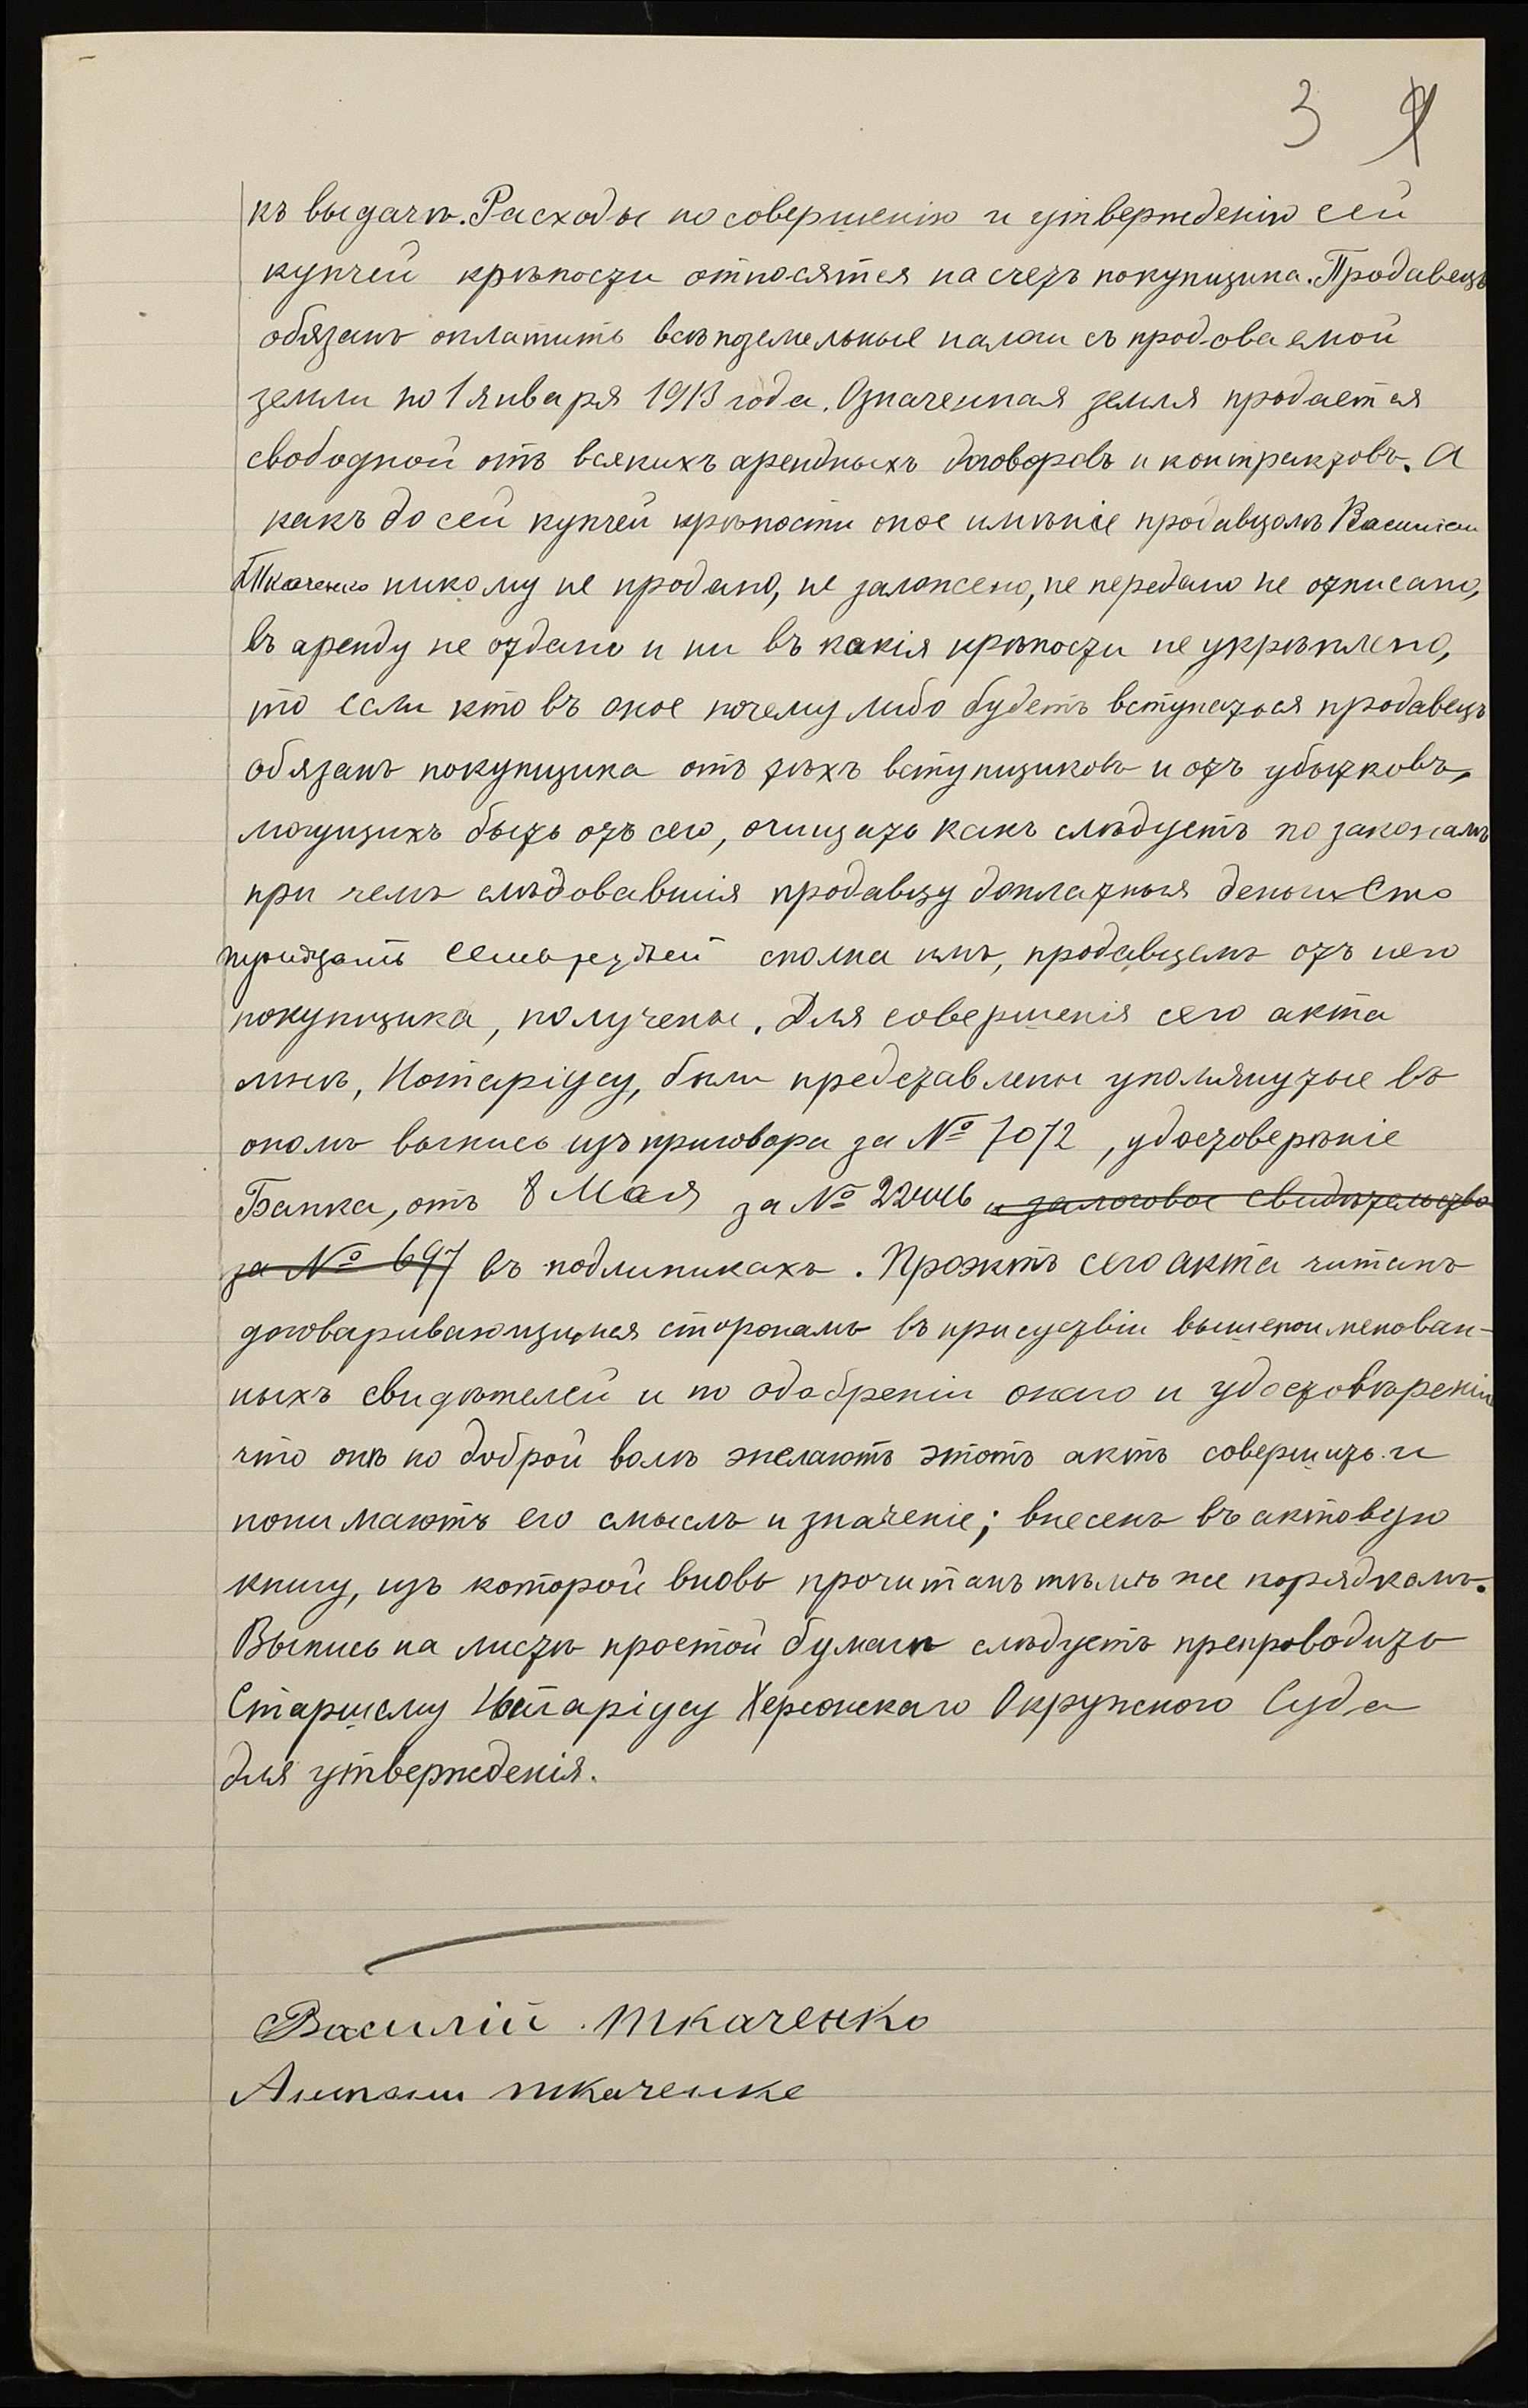 3
къ выдачѣ. Расходы по совершенію и утвержденію сей
купчей крѣпости относятся на счетъ покупщика. Продавецъ
обязанъ оплатить всѣ поземельные налоги съ продоваемой
земли по 1 января 1913 года. Означенная земля продается
свободной отъ всякихъ арендныхъ договоровъ и контрактовъ. А
какъ до сей купчей крѣпости оное имѣніе продавцомъ Василіем
Ткаченко никому не продано, не заложено, не передано не отписано,
въ аренду не отдано и ни въ какія крѣпости не укрѣплено,
то если кто въ оное почему либо будетъ вступаться продавецъ
обязанъ покупщика отъ тѣхъ вступщиковъ и отъ убытковъ,
могущихъ быть отъ сего, очищать какъ слѣдуетъ по законамъ
при чемъ слѣдовавшія продавцу доплатныя деньги Сто
тридцать семь рублей сполна имъ, продавцемъ отъ него
покупщика, получены. Для совершенія сего акта
мнѣ, Нотаріусу, были представлены упомянутые въ
ономъ выпись изъ приговора за № 7072, удостоверѣніе
Банка, отъ 8 Мая за № и залоговое свидѣтельство
за № 697 въ подлинникахъ. Проэктъ сего акта читанъ
договаривающимся сторонамъ въ присуствіи вышепоименован-
ныхъ свидѣтелей и по одобреніи онаго и удостовѣреніи
что онѣ по доброй волѣ желаютъ этотъ актъ совершить и
понимаютъ его смыслъ и значеніе; внесенъ въ актовую
книгу, изъ которой вновь прочитанъ тѣмъ же порядкомъ.
Выпись на листѣ простой бумаги слѣдуетъ препроводить
Старшему Нотаріусу Херсонскаго Окружного Суда
для утвержденія.
Василій Ткаченко
ткаченке